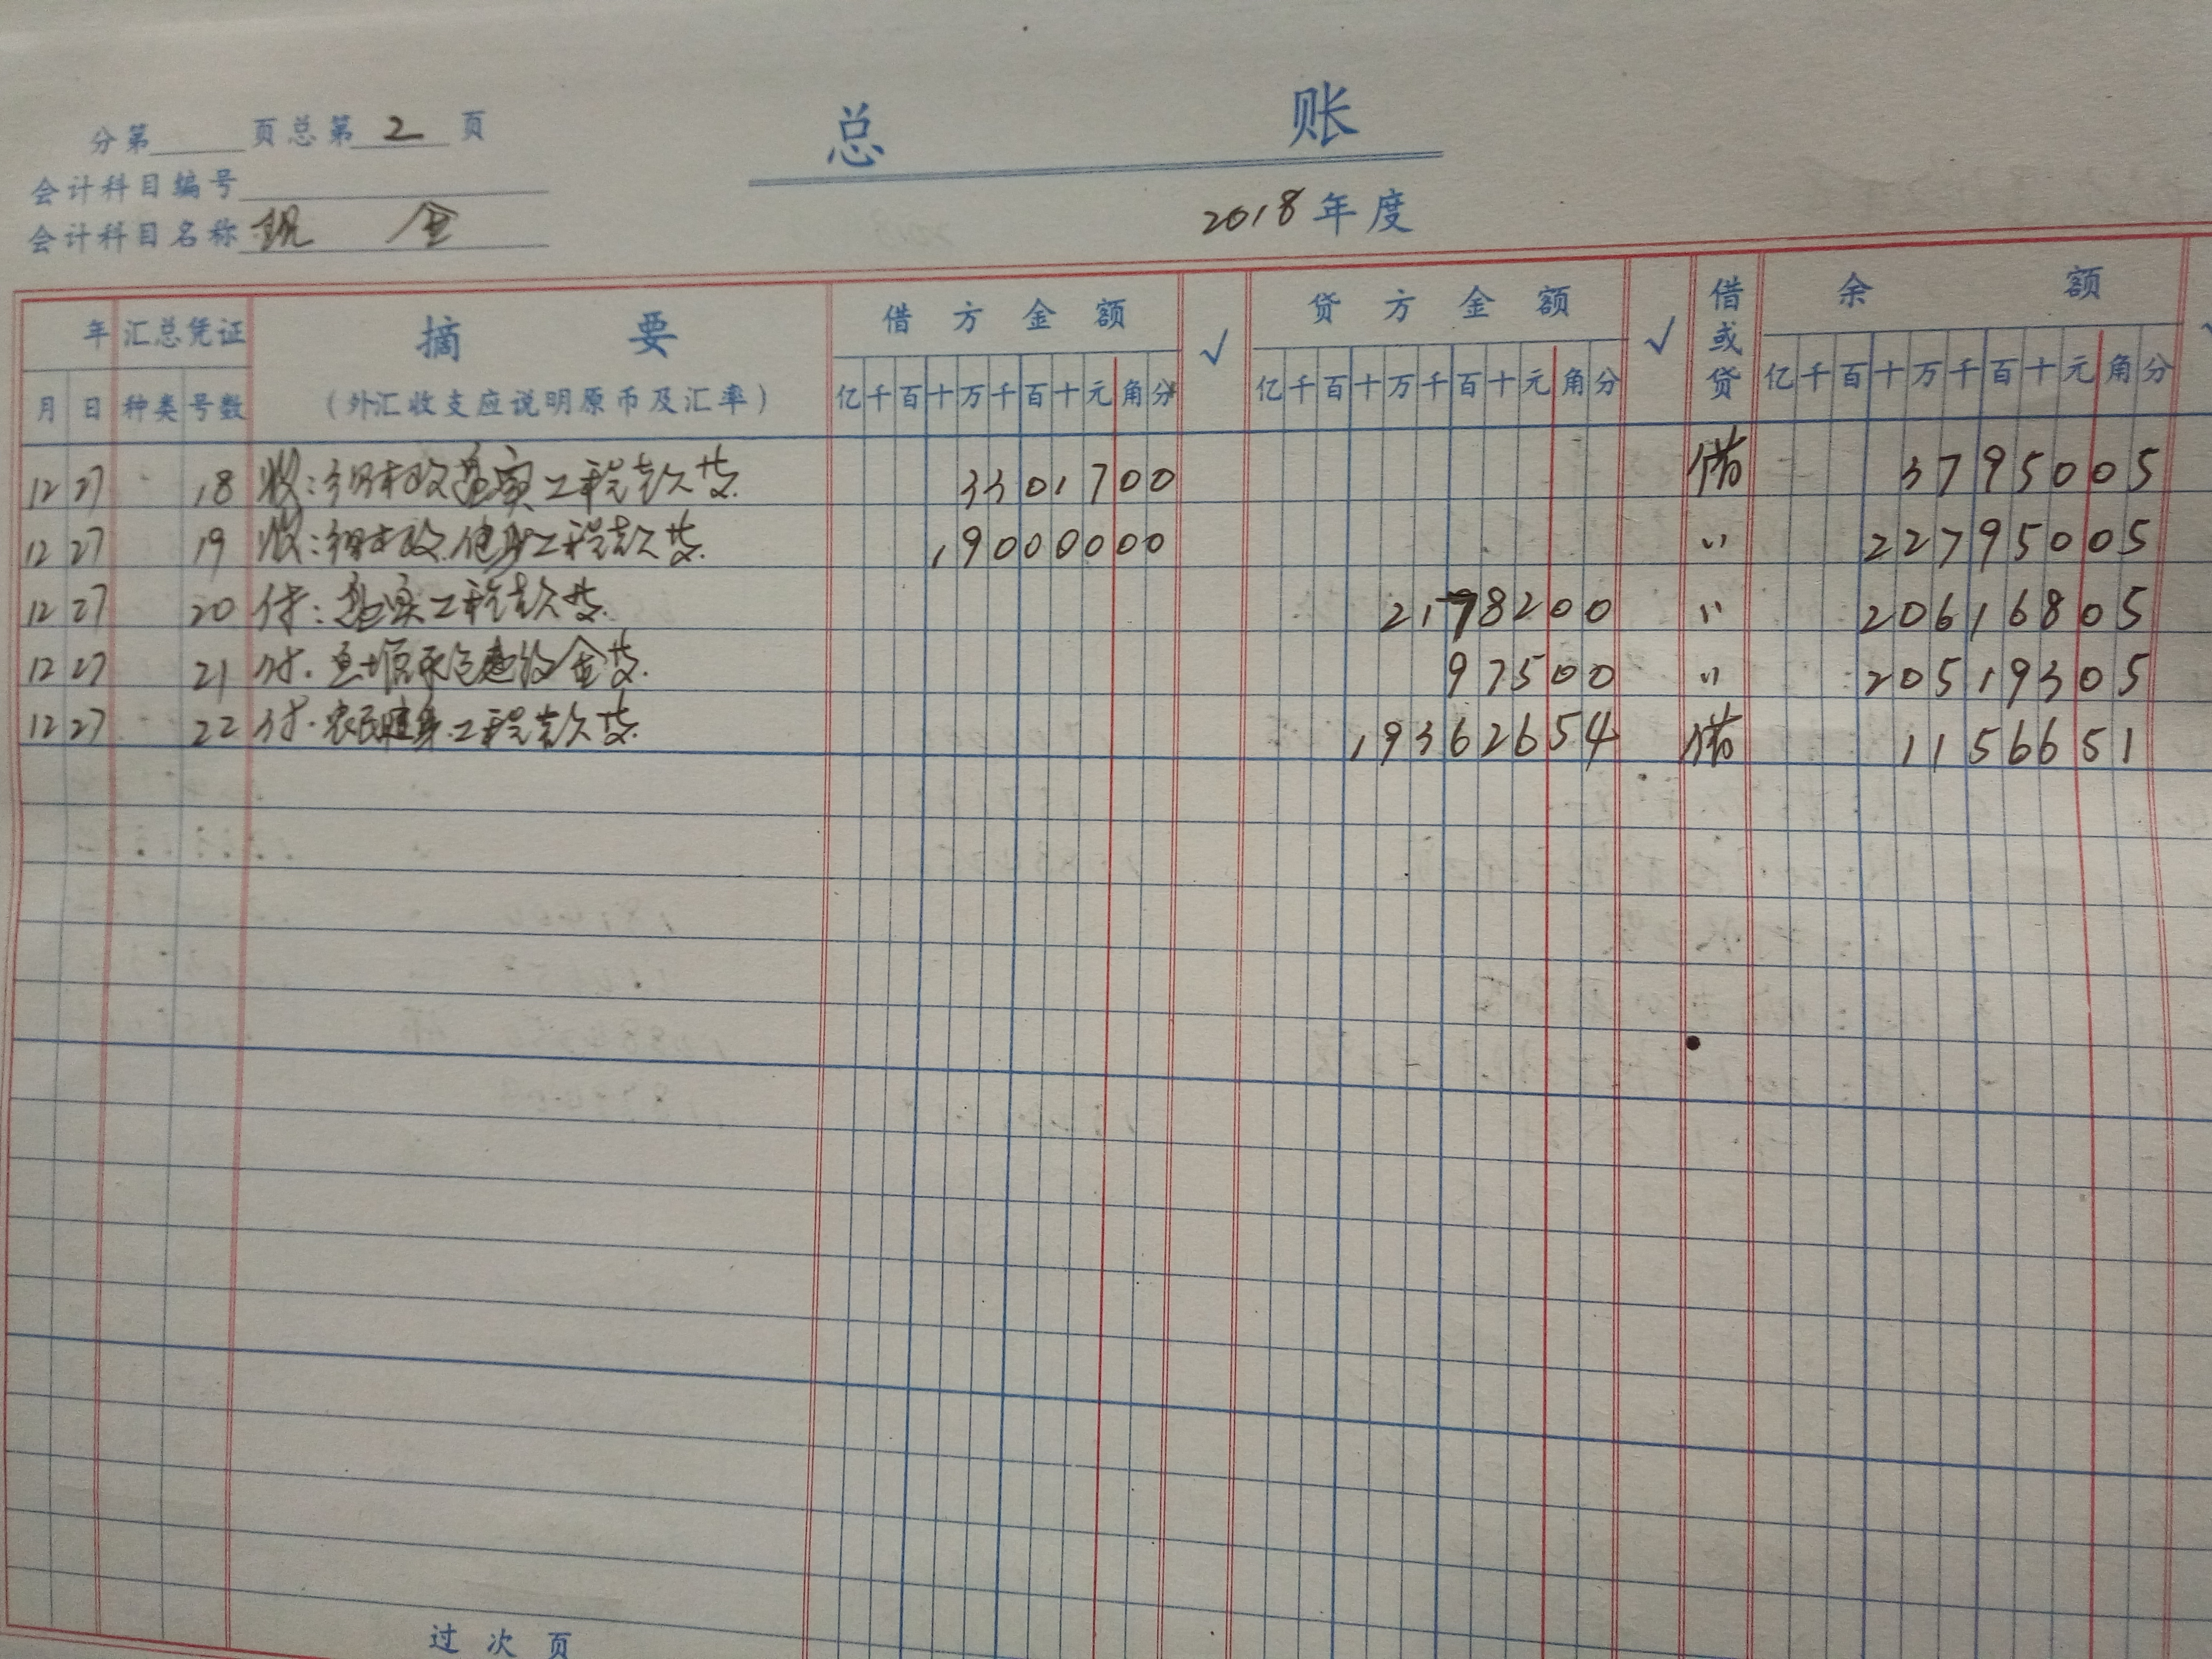 总 账
分第 页总第 2 页
会计科目编号
会计科目名称 现 金
2018 年度
年 汇总凭证 摘 要 借方金额 √ 贷方金额 √ 借或贷 余 额
月 日 种类 号数 (外汇收支应说明原币及汇率) 亿千百十万千百十元角分 亿千百十万千百十元角分 亿千百十万千百十元角分
12 27 18 收: 财政 工程款 3301700 借 3795005
12 27 19 收: 财政 工程款 19000000 〃 22795005
12 27 20 付: 工程款 2178200 〃 20616805
12 27 21 付. 金 97500 〃 20519305
12 27 22 付. 农民健身工程款 19362654 借 1156651
过次页